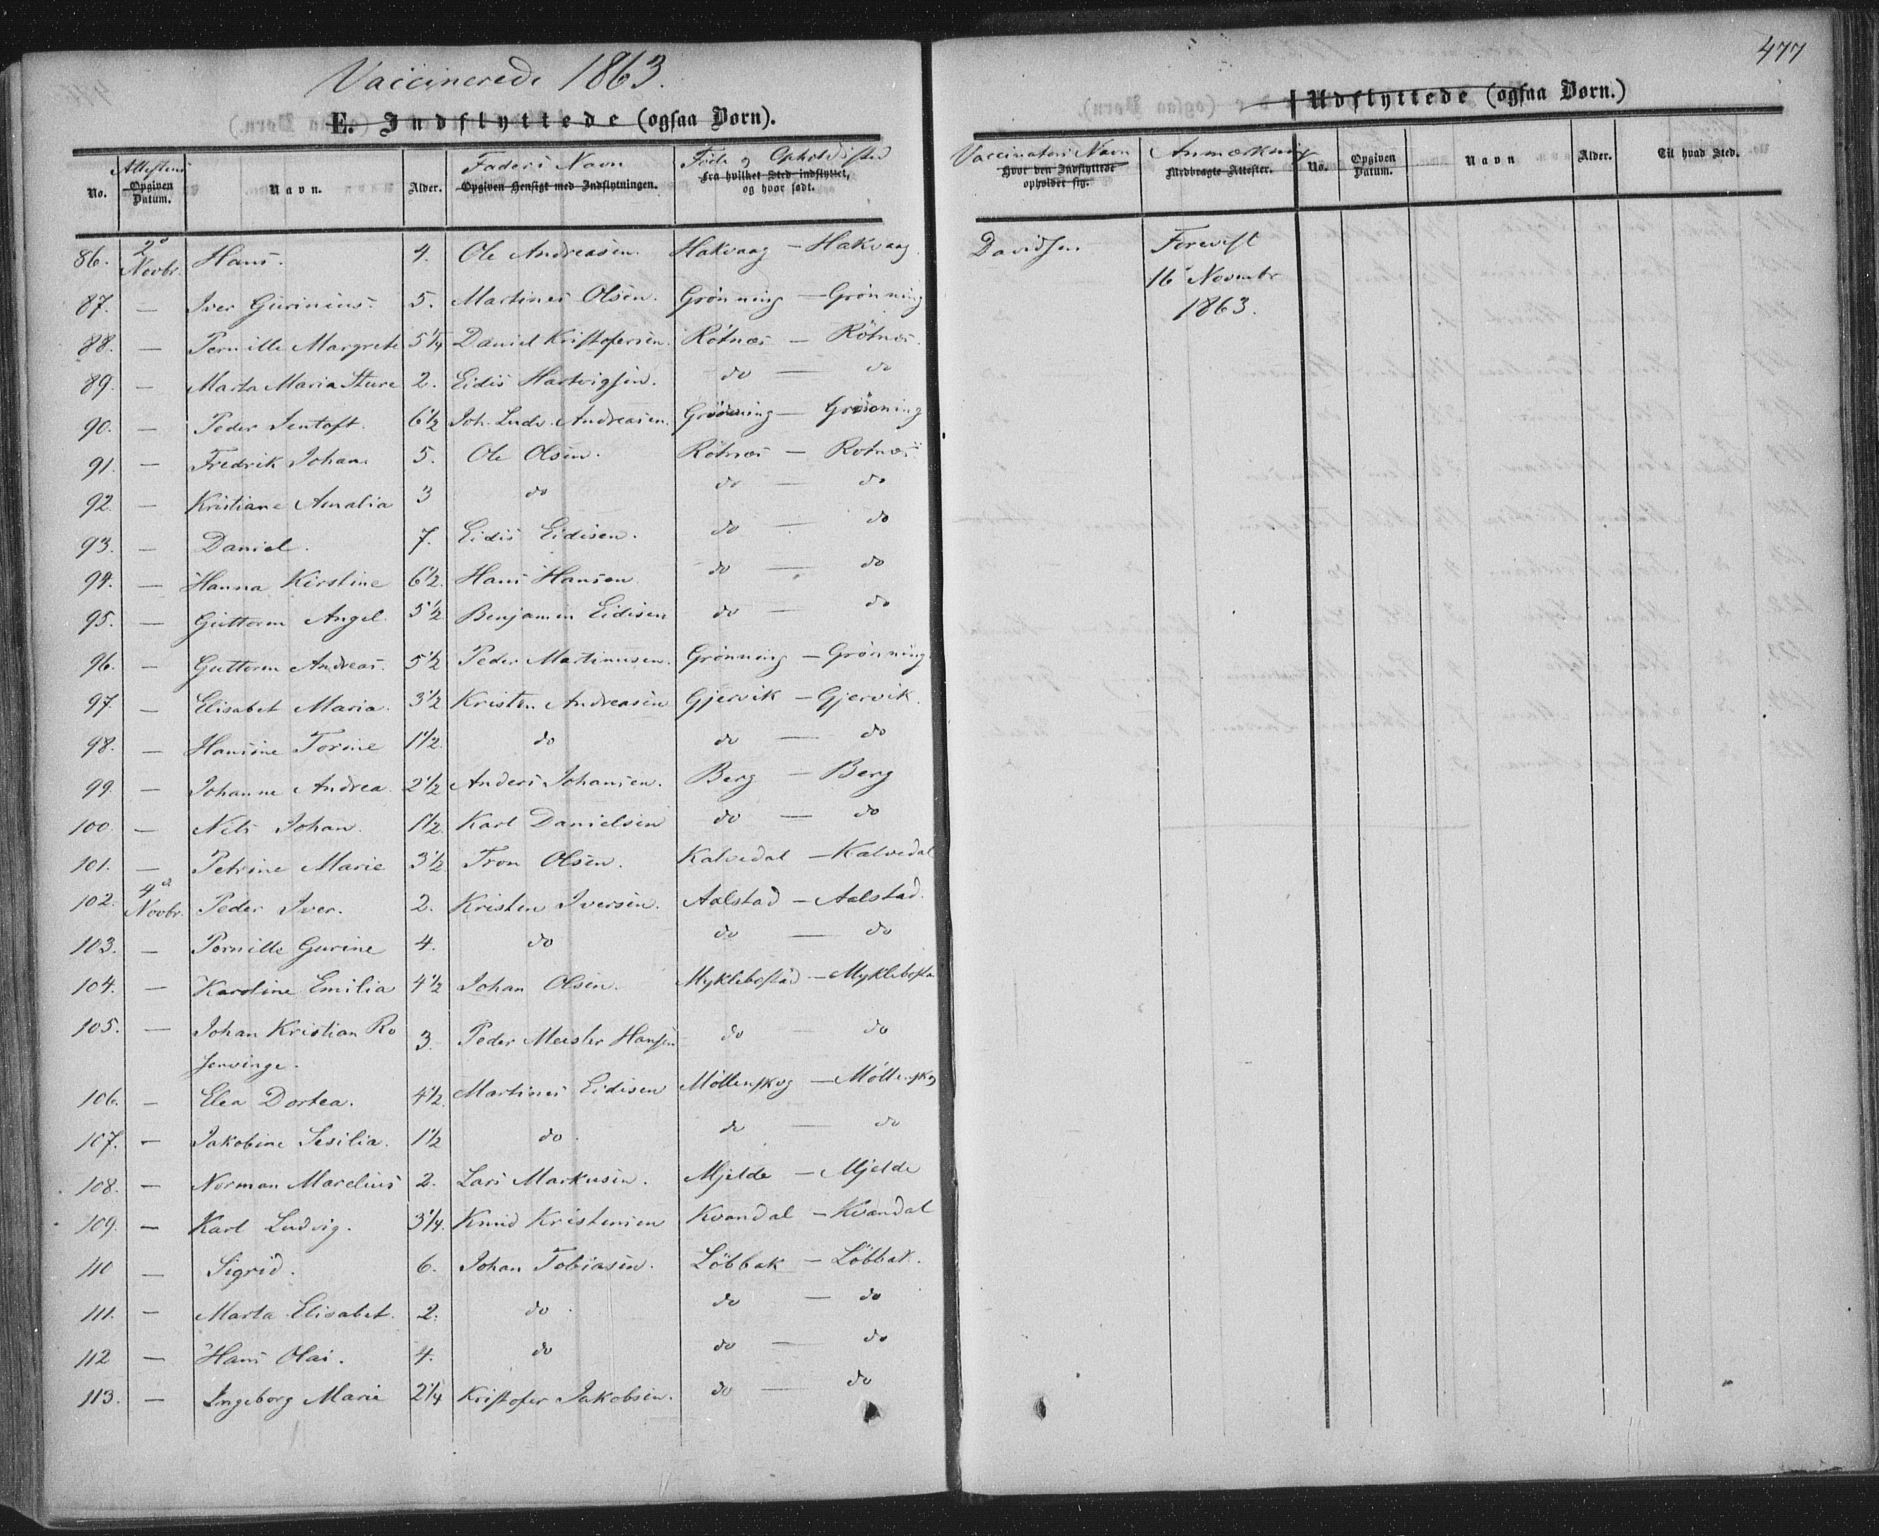 Vaccinerede 1863.
E. Indflyttede (ogsaa Børn).
No. Attestens Opgiven Datum. Navn. Alder. Faders Navn Opgiven Hensigt med Indflytningen. Føde og Opholdssted Fra hvilket Sted indflyttet, og hvor født.
86. 2d Novbr. Hans. 4. Ole Andreasen. Hakvaag — Hakvaag
87. — Iver Gurinius. 5. Martines Olsen. Grönning — Grönning
88. — Pernille Margrete 5 1/4 Daniel Kristofersen. Rötnæs — Rötnæs.
89. — Marta Maria Sture 2. Eidis Hartvigsen. do — do
90. — Peder Jentoft. 6 1/2 Joh. Ludv. Andreasen. Grönning — Grönning
91. — Fredrik Johan. 5. Ole Olsen. Rötnæs — Rötnæs
92. — Kristiane Amalia 3 do do — do
93. — Daniel. 7. Eidis Eidisen. do — do
94. — Hanna Kirstine 6 1/2. Hans Hansen do — do
95. — Guttorm Angel. 5 1/2 Benjamin Eidisen do — do
96. — Guttorm Andreas. 5 1/2 Peder Martinusen. Grönning — Grönning.
97. — Elisabet Maria. 3 1/2 Kristen Andreasen Gjervik — Gjervik.
98. — Hansine Torine 1 1/2. do do — do
99. — Johanne Andrea 2 1/2 Anders Johansen. Berg — Berg
100. — Nils Johan. 1 1/2. Karl Danielsen do — do
101. — Petrine Marie 3 1/2 Tron Olsen. Kalvedal — Kalvedal
102. 4d Novbr. Peder Iver. 2. Kristen Iversen. Aalstad — Aalstad.
103. — Pernille Gurine 4. do do — do
104. — Karoline Emilia 4 1/2 Johan Olsen. Myklebostad — Myklebosta
105. — Johan Kristian Ro
senvinge. 3. Peder Meister Hansen do do
106. — Elea Dortea. 4 1/2. Martines Eidisen Möllenskog — Möllenskog
107. — Jakobine Sesilia. 1 1/2 do. do — do
108. — Norman Marelius 2. Lars Markusen. Mjelde — Mjelde
109. — Karl Ludvig. 3 1/4. Knud Kristensen Kvandal — Kvandal
110 — Sigrid. 6. Johan Tobiasen. Löbbak — Löbbak.
111. — Marta Elisabet. 2. do. do — do
112 — Hans Olai. 4. do do — do
113. — Ingeborg Marie 2 1/4 Kristofer Jakobsen. do — do
477
Udflyttede (ogsaa Børn.)
Vaccinatørs Navn Hvor den Indflyttede opholder sig. Anmærkning Medbragte Attester. No. Opgiven Datum. Navn Alder. Til hvad Sted.
Davidsen Forevist
16 Novembr
1863.